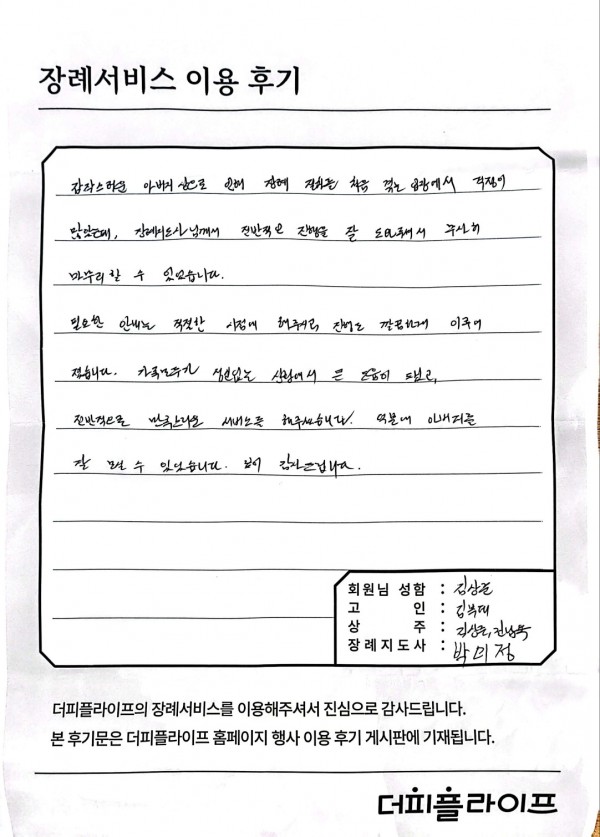 장례서비스 이용 후기
갑작스러운 아버지 상으로 인해 장례 절차는 처음 겪는 입장에서 걱정이
많았는데, 장례지도사님께서 전반적인 진행을 잘 도와주셔서 무사히
마무리할 수 있었습니다.
필요한 안내는 적절한 시점에 해주시고, 진행도 깔끔하게 이루어
졌습니다. 가족모두가 정신없는 상황에서 큰 도움이 되었고,
전반적으로 만족스러운 서비스를 해주셨습니다. 덕분에 아버지를
잘 모실 수 있었습니다. 깊이 감사드립니다.
회원님 성함 : 김상훈
고 인 : 김복태
상 주 : 김상훈,
장례지도사 : 박미정
더피플라이프의 장례서비스를 이용해주셔서 진심으로 감사드립니다.
본 후기문은 더피플라이프 홈페이지 행사 이용 후기 게시판에 기재됩니다.
더피플라이프